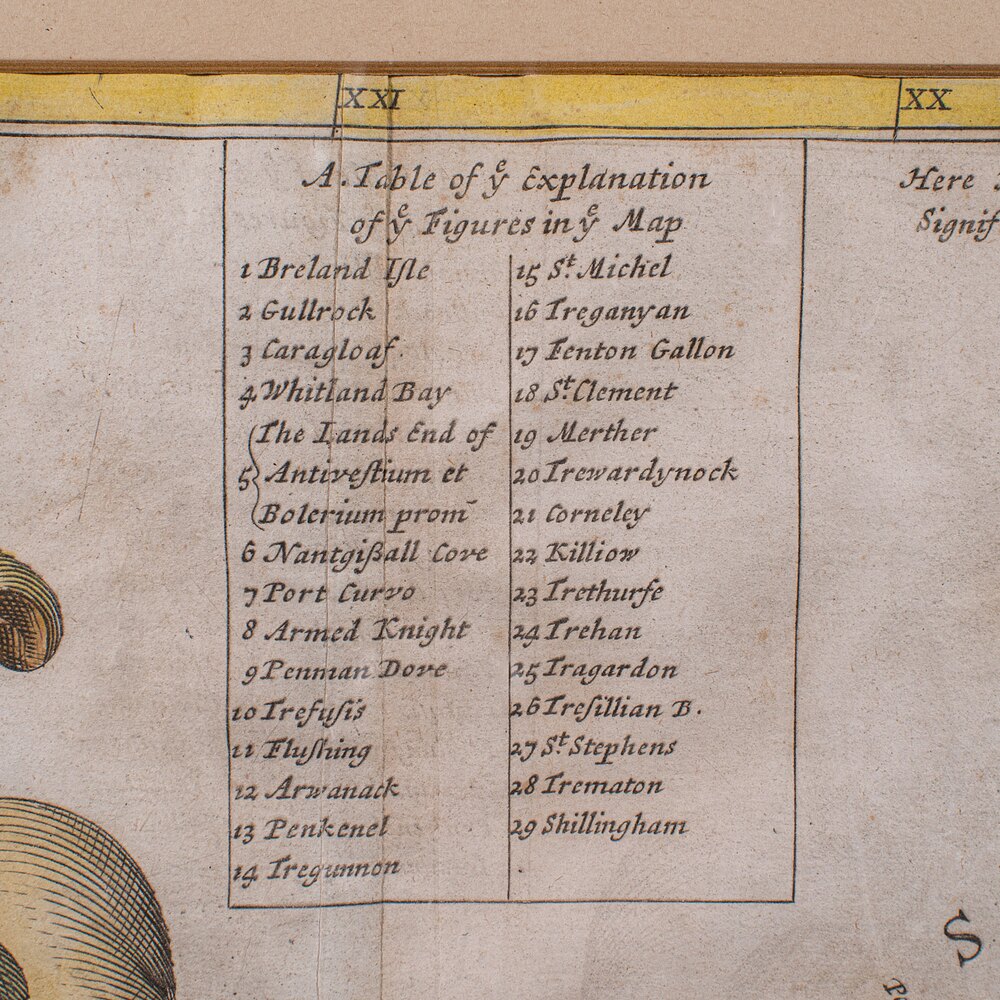 XXI
XX
A. Table of yͤ Explanation
of yͤ Figures in yͤ Map
1 Breland Iſle
2 Gullrock
3 Caragloaf
4 Whitland Bay
The Lands End of
5 Antiveſtium et
Bolerium prom̄
6 Nantgißall Cove
7 Port Curvo
8 Armed Knight
9 Penman Dove
10 Trefuſis
11 Fluſhing
12 Arwanack
13 Penkenel
14 Tregunnon
15 Sᵗ. Michel
16 Treganyan
17 Fenton Gallon
18 Sᵗ. Clement
19 Merther
20 Trewardynock
21 Corneley
22 Killiow
23 Trethurfe
24 Trehan
25 Tragardon
26 Treſillian B.
27 Sᵗ. Stephens
28 Trematon
29 Shillingham
Here
Signif
S